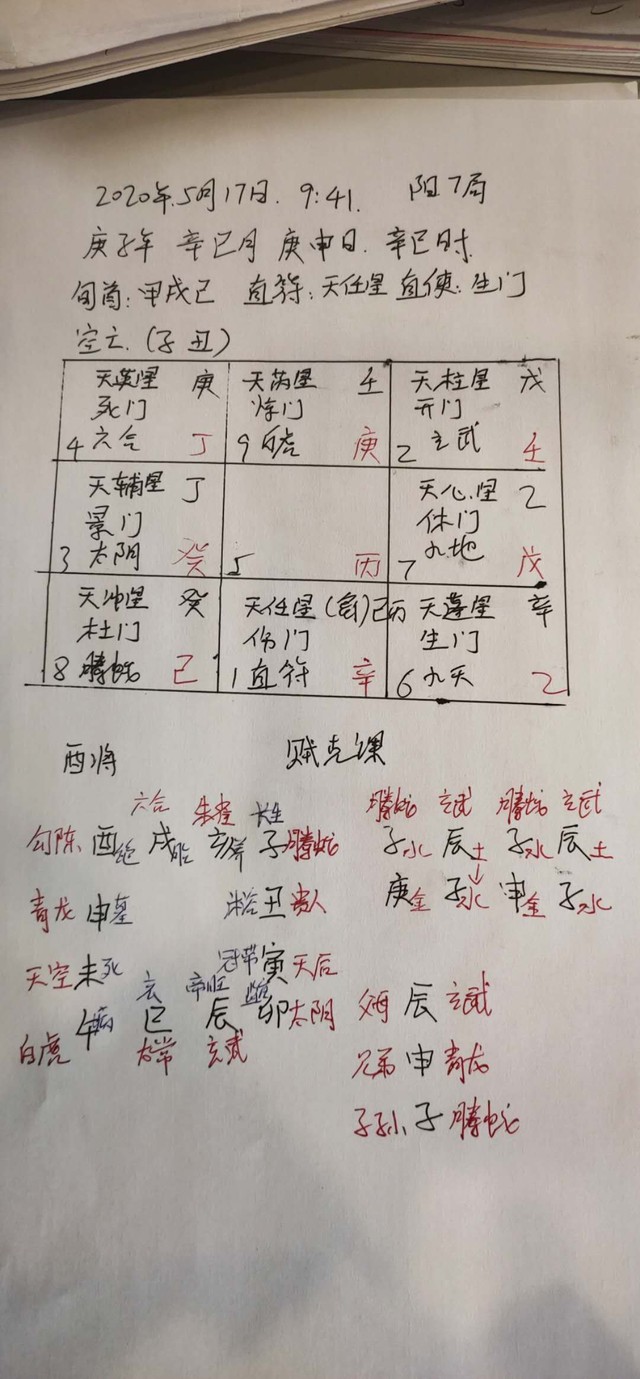 2020年.5月17日. 9:41. 阳7局
庚子年 辛巳月 庚申日. 辛巳时.
旬首: 甲戌己 直符: 天任星 直使: 生门
空亡. (子丑)
天英星 庚 天芮星 壬 天柱星 戊
死门 惊门 开门
4 六合 丁 9 白虎 庚 2 玄武 壬
天辅星 丁 天心星 乙
景门 休门
3 太阴 癸 5 丙 7 九地 戊
天冲星 癸 天任星 (禽)己丙 天蓬星 辛
杜门 伤门 生门
8 腾蛇 己 1 直符 辛 6 九天 乙
酉将 贼克课
六合 朱雀 长生 腾蛇 玄武 腾蛇 玄武
勾陈 酉绝 戌胎 亥养 子腾蛇 子水 辰土 子水 辰土
青龙 申墓 沐浴丑贵人 庚金 子水 申金 子水
天空未死 冠带寅天后
午病 巳 帝旺 辰 卯太阴 父母 辰 玄武
白虎 太常 玄武 兄弟 申 青龙
子孙 子 腾蛇